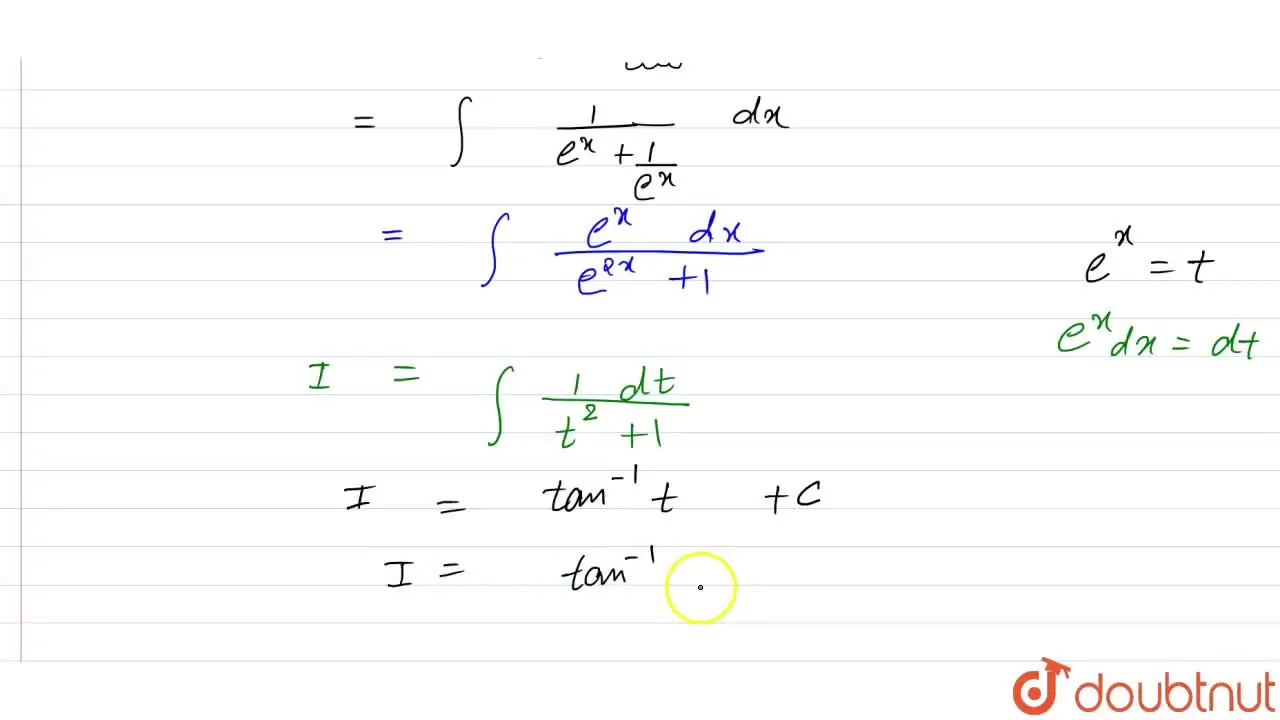 = ∫ 1/(eˣ + 1/eˣ) dx
= ∫ eˣ dx/(e²ˣ + 1)
eˣ = t
eˣ dx = dt
I = ∫ 1 dt/(t² + 1)
I = tan⁻¹ t + C
I = tan⁻¹
doubtnut